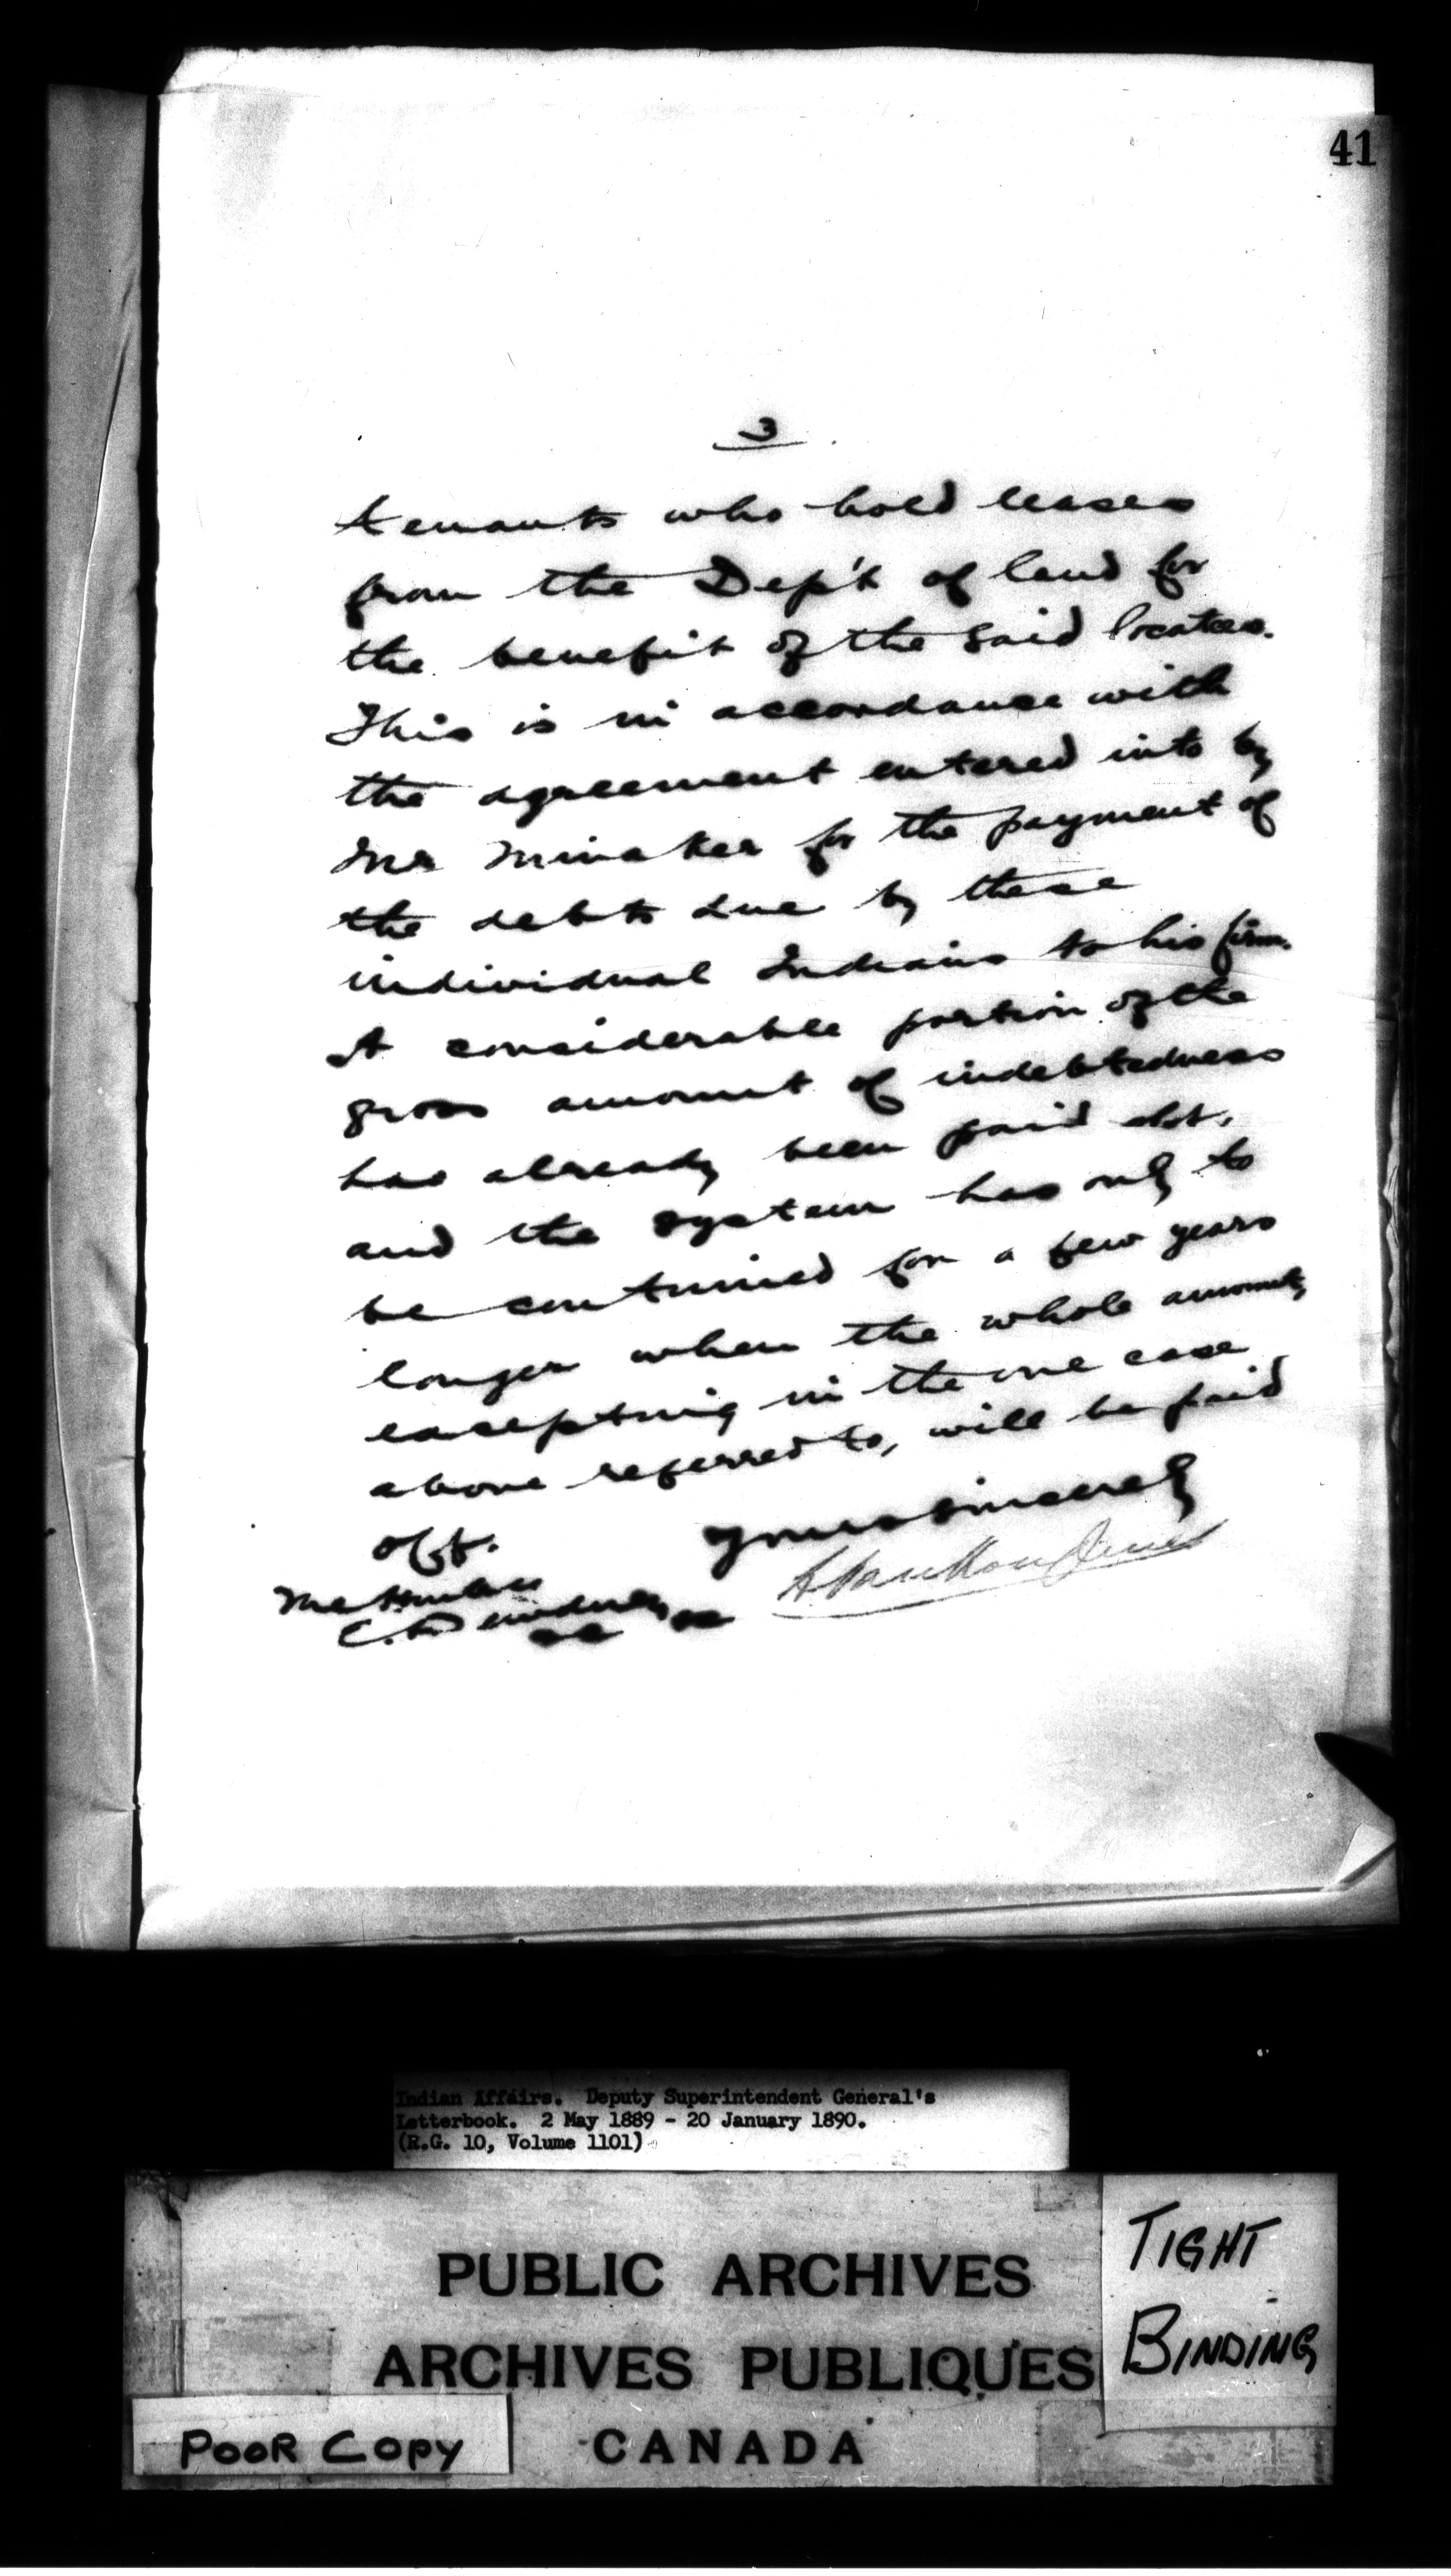 41
3
tenants who hold leases
from the Dep't of land for
the benefit of the said locatees.
This is in accordance with
the agreement entered into by
Mr Minaker for the payment of
the debts due by these
individual Indians to his firm.
A considerable portion of the
gross amount of indebtedness
has already been paid
and the system has only to
be continued for a few years
longer when the whole amount,
excepting in the one case
above referred to, will be paid
off. Yours sincerely
The Honble
E. Dewdney
Indian Affairs. Deputy Superintendent General's
Letterbook. 2 May 1889 - 20 January 1890.
(R.G. 10, Volume 1101)
PUBLIC ARCHIVES
ARCHIVES PUBLIQUES
CANADA
TIGHT
BINDING
POOR COPY